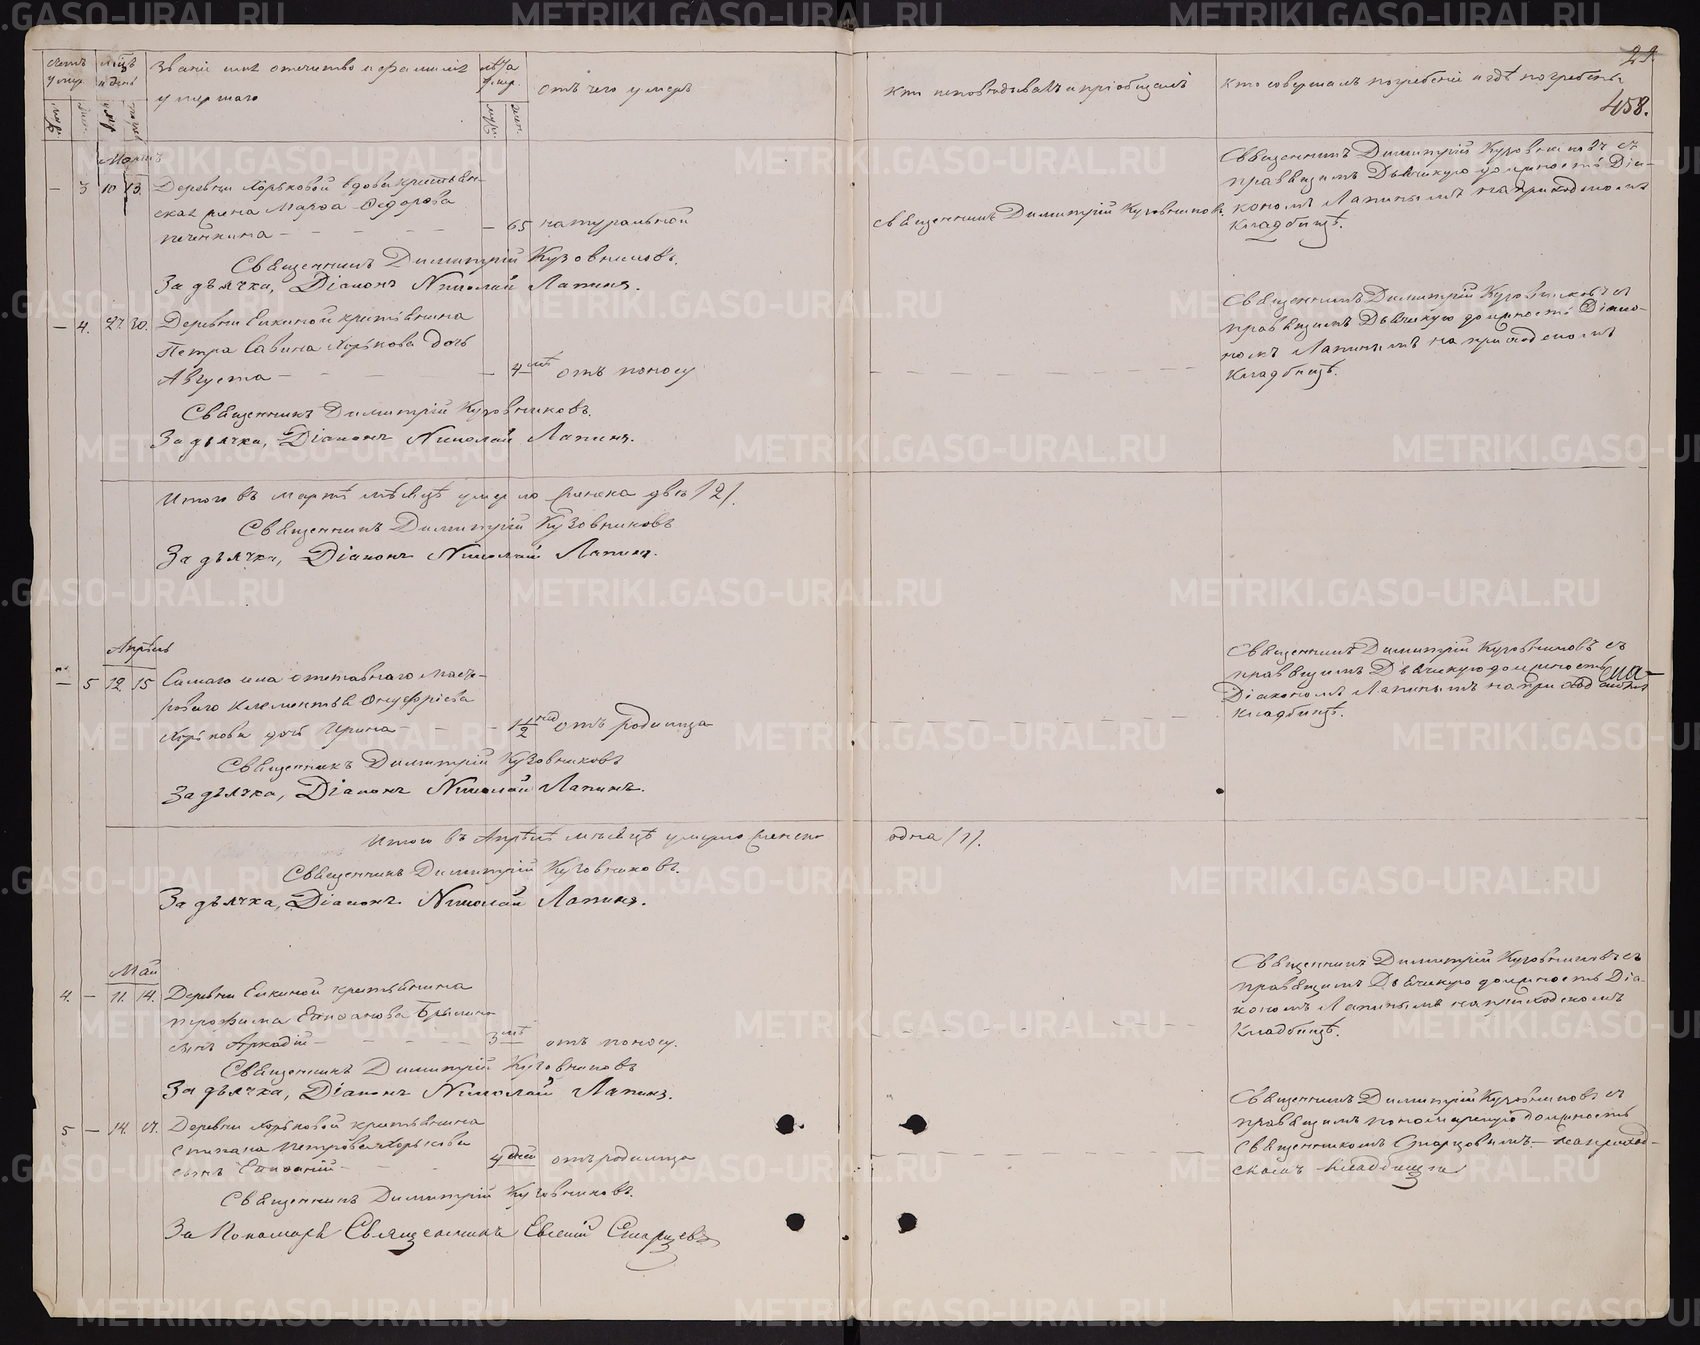 29
458.
Счетъ умер.
Мѣцъ и день
Званіе имя отчество и фамилія умершаго
Лѣта умер.
отъ чего умеръ
Кто исповѣдывалъ и пріобщалъ
Кто совершалъ погребеніе и гдѣ погребены
Мартъ
— 3 10 13 Деревни Хорьковой вдова крестьян-
ская жена Марѳа Ѳедорова
Печенкина — 65 натуральной
Священникъ Димитрій Кузовниковъ.
Священникъ Димитрій Кузовниковъ съ
правящимъ Дьячкую должность Діа-
кономъ Лапинымъ на приходскомъ
Кладбищѣ.
Священникъ Димитрій Кузовниковъ.
За дьячка, Діаконъ Николай Лапинъ.
— 4. 27. 30. Деревни Елкиной крестьянина
Петра Савина Хорькова дочь
Августа — 4 мѣ отъ поносу
Священникъ Димитрій Кузовниковъ съ
правящимъ Дьячкую должность Діако-
номъ Лапинымъ на приходскомъ
Кладбищѣ.
Священникъ Димитрій Кузовниковъ.
За дьячка, Діаконъ Николай Лапинъ.
Итого въ мартѣ мѣсяцѣ умерло женска двѣ /2/.
Священникъ Димитрій Кузовниковъ
За дьячка, Діаконъ Николай Лапинъ.
Апрѣль
— 5 12 15 Самаго отставнаго масте-
роваго Клементья Онуфріева
Хорькова дочь Ирина — 1/2 нед отъ родимца
Священникъ Димитрій Кузовниковъ съ
правящимъ Дьячкую должность
Діакономъ Лапинымъ на приходскомъ
Кладбищѣ.
Священникъ Димитрій Кузовниковъ
За дьячка, Діаконъ Николай Лапинъ.
Итого въ Апрѣлѣ мѣсяцѣ умерло женска одна /1/.
Священникъ Димитрій Кузовниковъ.
За дьячка, Діаконъ Николай Лапинъ.
Май
4. — 11. 14. Деревни Елкиной крестьянина
Трофима Епифанова
сынъ Аркадій — 3 мѣ отъ поносу.
Священникъ Димитрій Кузовниковъ съ
правящимъ Дьячкую должность Діа-
кономъ Лапинымъ на приходскомъ
Кладбищѣ.
Священникъ Димитрій Кузовниковъ
За дьячка, Діаконъ Николай Лапинъ.
5 — 14. 17. Деревни Хорьковой крестьянина
Степана Петрова Хорькова
сынъ Епифаній — 4 дней отъ родимца
Священникъ Димитрій Кузовниковъ съ
правящимъ пономарскую должность
Священникомъ Старцовымъ — на приход-
скомъ кладбищѣ
Священникъ Димитрій Кузовниковъ.
За Пономаря Священникъ Евгеній Старцевъ
METRIKI.GASO-URAL.RU